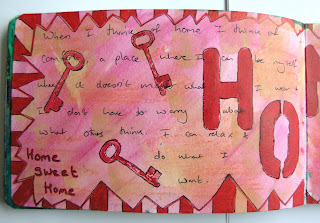 When I think of home I think of
comfort, a place where I can be myself
where it doesn't matter what I wear &
I don't have to worry about
what others think. I can relax &
do what I
want.
HO
Home
Sweet
Home